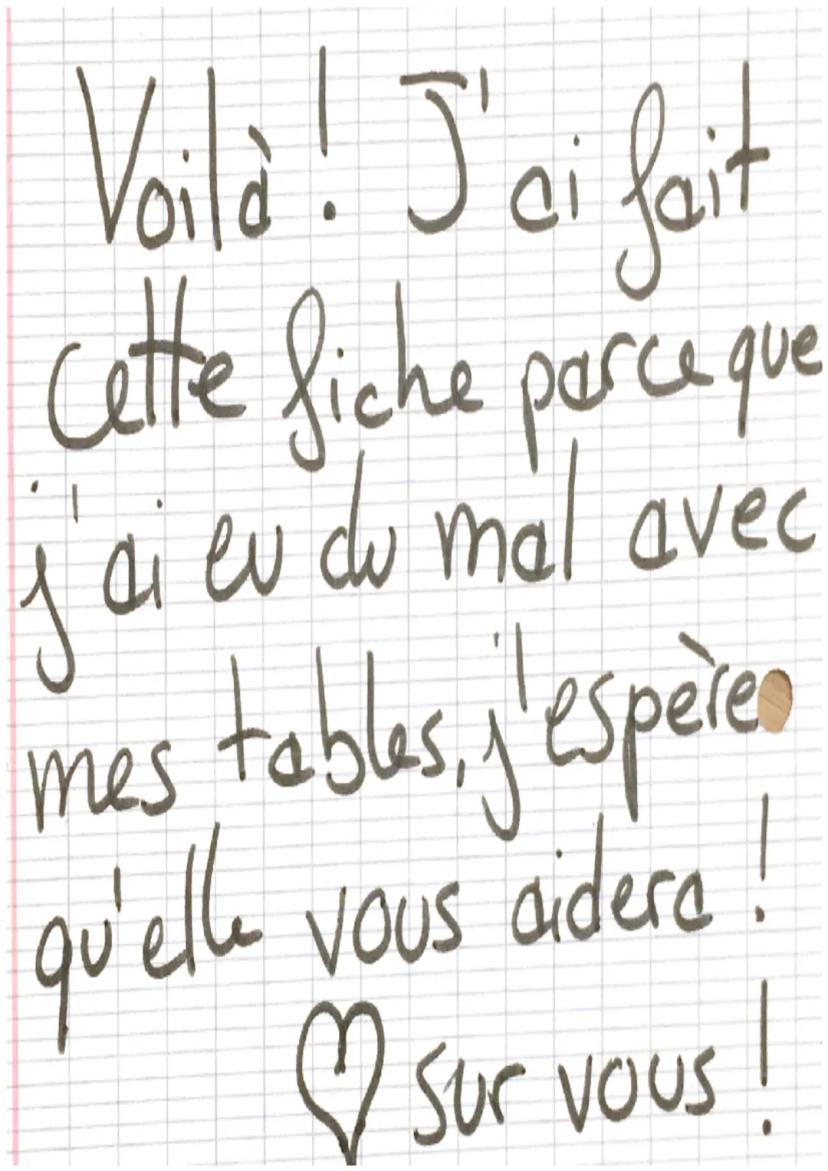 Voilà ! J'ai fait
cette fiche parce que
j'ai eu du mal avec
mes tables, j'espère
qu'elle vous aidera !
♡ sur vous !